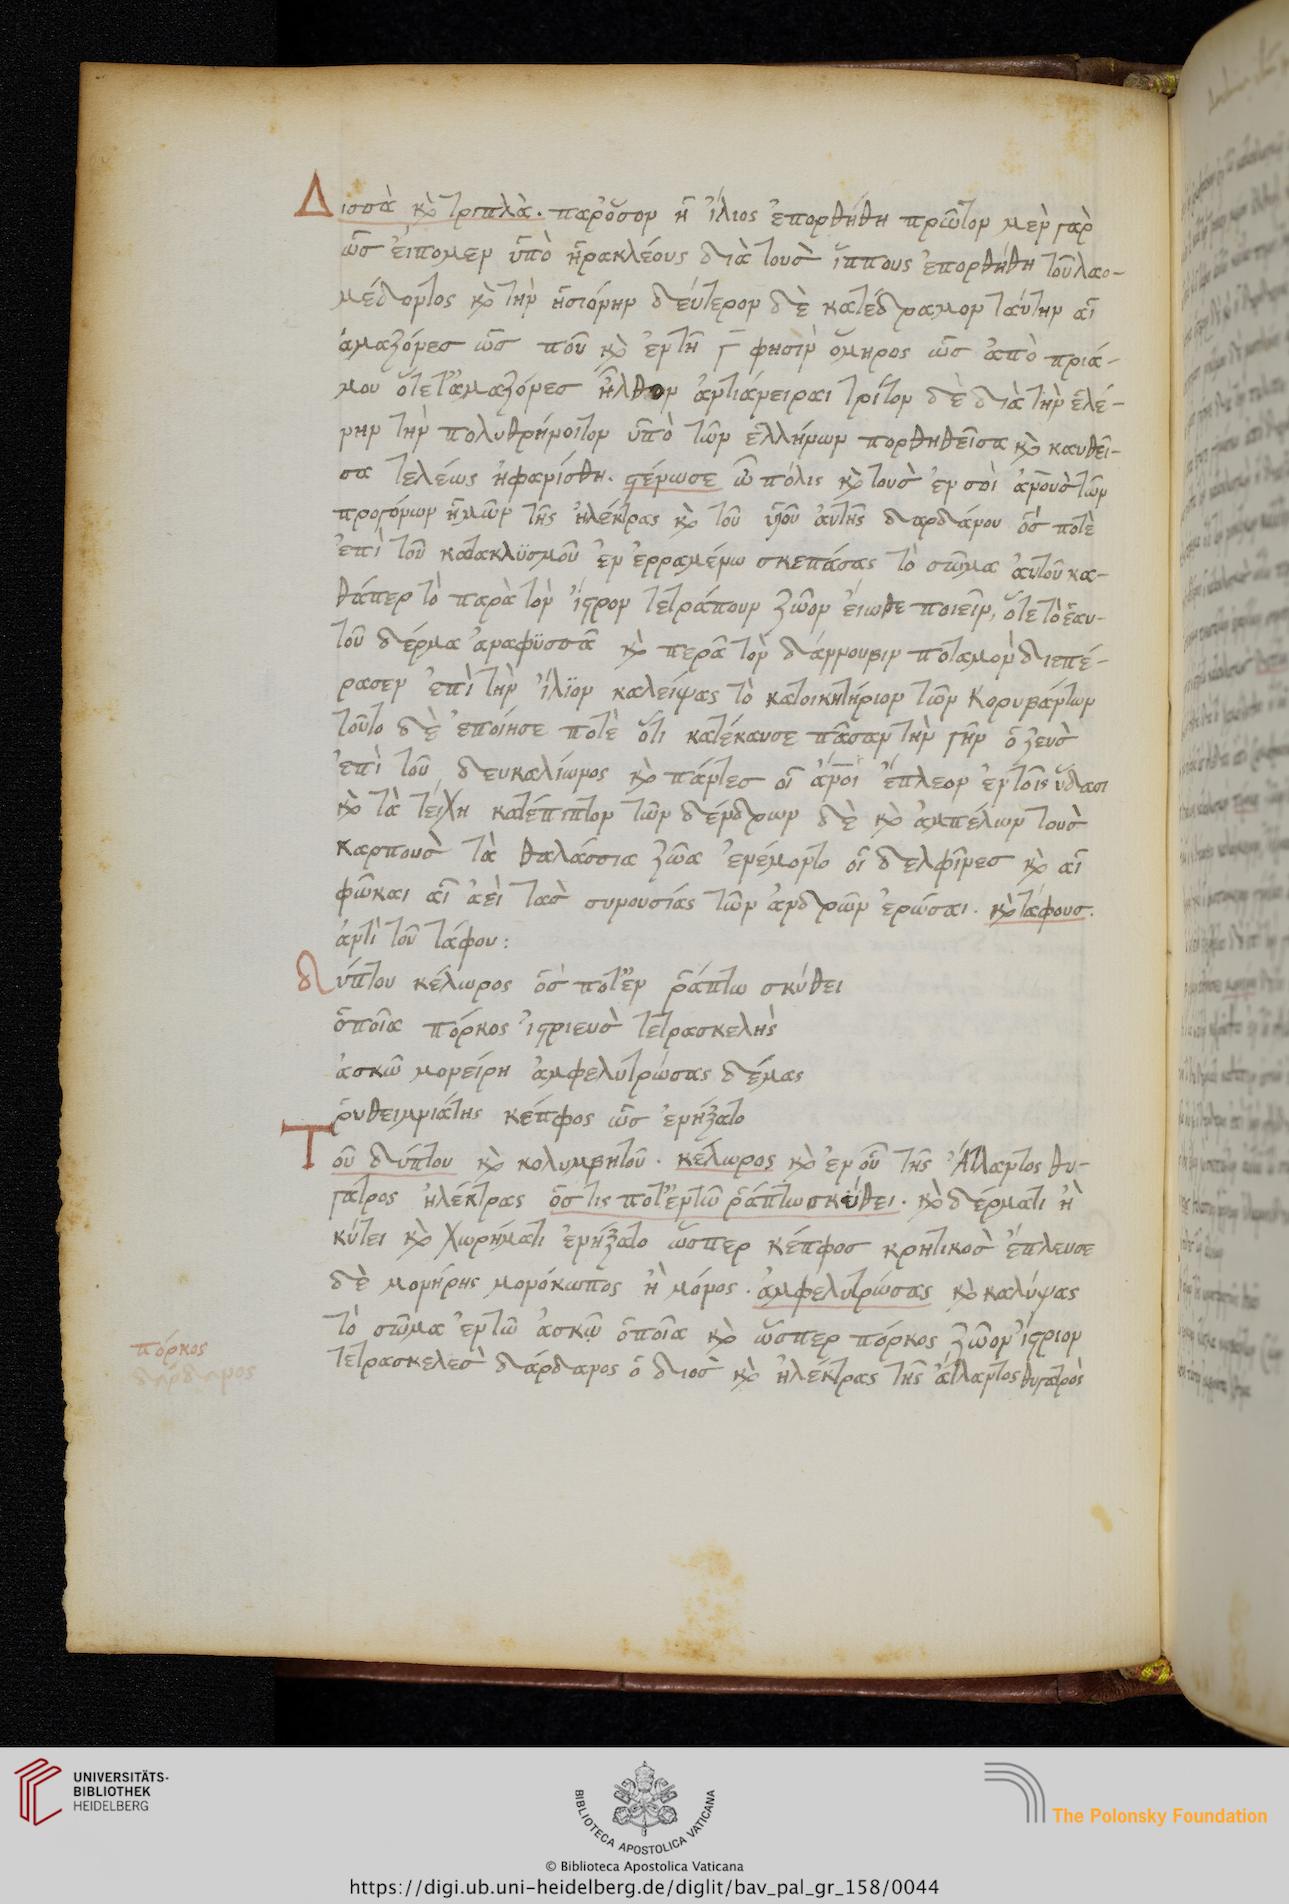 Δισσὰ κὶ τριπλὰ. παρόσον ἡ ἴλιος ἐπορθήθη πρῶτον μὲν γὰρ
ὡς εἴπομεν ὑπὸ ἡρακλέους διὰ τοὺς ἵππους ἐπορθήθη τοῦ λαο-
μέδοντος κὶ τὴν ἡσιόνην δεύτερον δὲ κατέδραμον ταύτην αἱ
ἀμαζόνες ὥς που κὶ ἐν τῆ γ̅ φησὶν ὅμηρος ὡς ἀπὸ πριά-
μου ὅτε τ' ἀμαζόνες ἦλθον ἀντιάνειραι τρίτον δὲ διὰ τὴν ἑλέ-
νην τὴν πολυθρήνοιτον ὑπὸ τῶν ἑλλήνων πορθηθεῖσα κὶ καυθεῖ-
σα τελέως ἠφανίσθη. στένω σε ὦ πόλις κὶ τοὺς ἐν σοὶ ἀν̅ους τῶν
προγόνων ἡμῶν τῆς ἠλέκτρας κὶ τοῦ υἱοῦ αὐτῆς δαρδάνου ὅς ποτὲ
ἐπὶ τοῦ κατακλϋσμοῦ ἐν ἐρραμένω σκεπάσας τὸ σῶμα αὐτοῦ κα-
θάπερ τὸ παρὰ τὸν ἴστρον τετράπουν ζῶον εἴωθε ποιεῖν, ὅτε τὸ ἑαυ-
τοῦ δέρμα ἀναφϋσσᾶ κὶ περᾶ τὸν δάννουβιν ποταμὸν διεπέ-
ρασεν ἐπὶ τὴν ἴλϊον καλείψας τὸ κατοικητήριον τῶν Κορυβάντων
τοῦτο δὲ ἐποίησε ποτὲ ὅτι κατέκαυσε πᾶσαν τὴν γῆν ὁ ζεὺς
ἐπὶ τοῦ δευκαλίωνος κὶ πάντες οἱ ἀν̅οι ἔπλεον ἐν τοῖς ὕδασι
κὶ τὰ τείχη κατέπιπτον τῶν δένδρων δὲ κὶ ἀμπέλων τοὺς
καρποὺς τὰ θαλάσσια ζῶα ἐνέμοντο οἱ δελφῖνες κὶ αἱ
φῶκαι αἱ ἀεὶ τὰς συνουσίας τῶν ἀνδρῶν ἐρώσαι. κὶ τάφους.
ἀντὶ τοῦ τάφου:
δύπτου κέλωρος ὅς ποτ' ἐν ῥάπτω σκύθει
ὁποῖα πόρκος ἰστριεὺς τετρασκελὴς
ἀσκῶ μονείρη ἀμφελυτρώσας δέμας
ῥυθειμνιάτης κέπφος ὣς ἐνήξατο
Τοῦ δύπτου κὶ κολυμβητοῦ. κέλωρος κὶ ἐν οὗ τῆς Ἄτλαντος θυ-
γατρος ἠλέκτρας ὅς τις ποτ' ἐν τῶ ῥάπτω σκύθει. κὶ δέρματι ἢ
κύτει κὶ χωρήματι ἐνήξατο ὥσπερ κέπφος κρητικὸς ἔπλευσε
δὲ μονήρης μονόκωπος ἢ μόνος. ἀμφελυτρώσας κὶ καλύψας
τὸ σῶμα ἐν τῶ ἀσκῶ ὁποῖα κὶ ὥσπερ πόρκος ζῶον ἴστριον
τετρασκελὲς δάρδανος ὁ διὸς κὶ ἠλέκτρας τῆς ἄτλαντος θυγατρὸς
πόρκος
δάρδανος
UNIVERSITÄTS-
BIBLIOTHEK
HEIDELBERG
BIBLIOTECA APOSTOLICA VATICANA
The Polonsky Foundation
© Biblioteca Apostolica Vaticana
https://digi.ub.uni-heidelberg.de/diglit/bav_pal_gr_158/0044